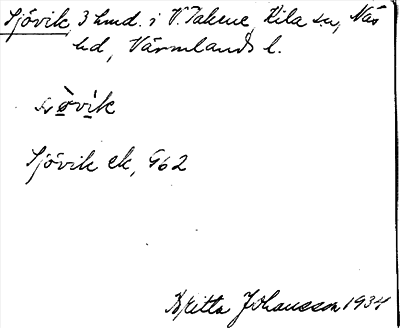 Sjövik, 3 hmd. i V. Takene, Kila sn, Näs
hd, Värmlands l.
ṣòvik
Sjövik ek, G62
Britta Johansson 1934